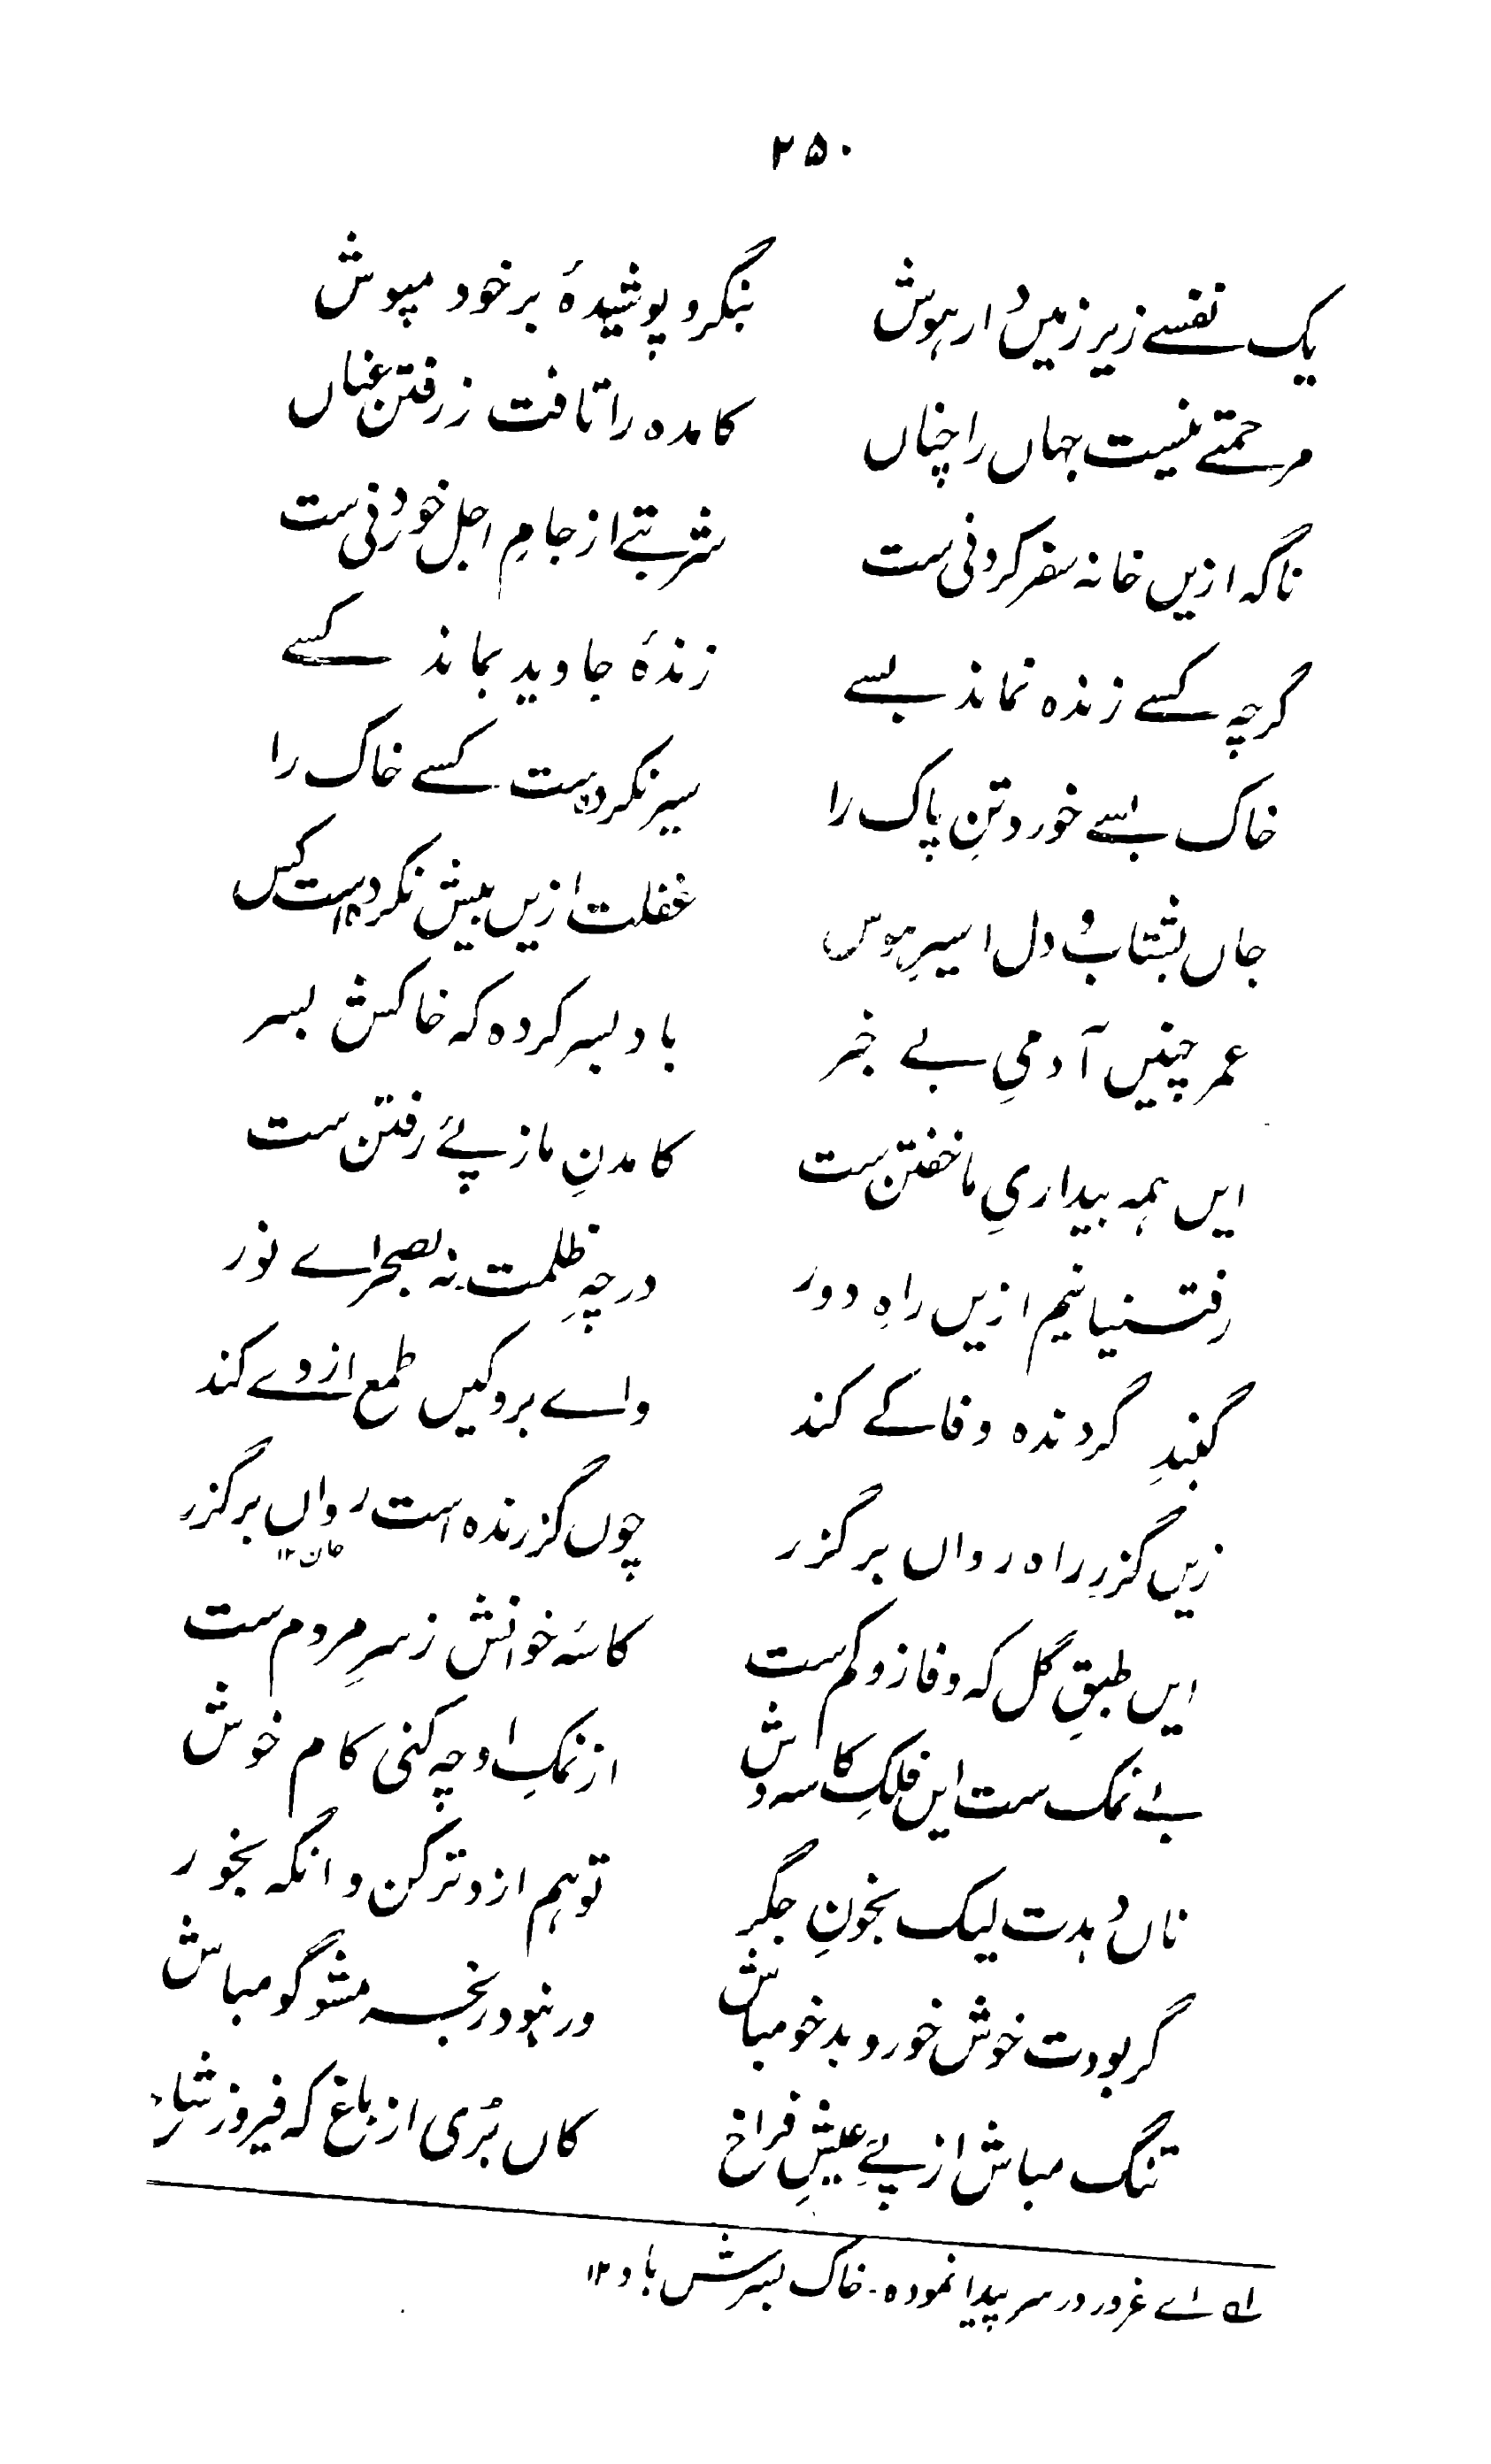 ۲۵۰
یک نفسے زیرِ زمیں دُار ہوش بنگر و پوشیدہٴ بر خود مپوش
مرحمتے نیست جہاں را چناں کامدہ را تافت ز رفتن عناں
ناگہ ازیں خانہ سفر کردنی ست شربتے از جامِ اجل خوردنی ست
گرچہ کسے زندہ نماند بسے زندہٴ جاوید بماند کسے
خاک بسے خورد تنِ پاک را سیر نکردہست کسے خاک را
جاں بشتاب و دل اسیرِ ہوس غفلت ازیں بیش نکردہست کس
عمر چنیں آدمیِ بے خبر باد بسر کردہ کہ خاکش بسر
ایں ہمہ بیداریِ ما خفتن ست کامدنِ ما ز پئے رفتن ست
رفتنیانیم ازیں راہِ دور در چہِ ظلمت نہ بصحرائے نور
گنبدِ گردندہ وفا کے کند وائے برو کیں طمع از وے کند
زیں گزرِ راہ رواں برگزر چوں گزرندہ است رواں برگزر
جان ۱۲
ایں طبقِ گل کہ وفا زو کم ست کاسہٴ خوانش ز سرِ مردم ست
بے نمک ست ایں فلکِ کاسہ وش از نمکِ او چہ کنی کام خوش
ناں دُہدت لیک بخونِ جگر تو ہم ازو تر کن و انگہ بخور
گر بودت خوش خور و بدخو مباش ور نبود رنجہ مشو گو مباش
تنگ مباش از پئے عیشِ فراخ کاں بُری از باغ کہ فیروز شاخ
لہ اے غرور در سر پیدا نمودہ۔ خاک بسرش باد ۱۲